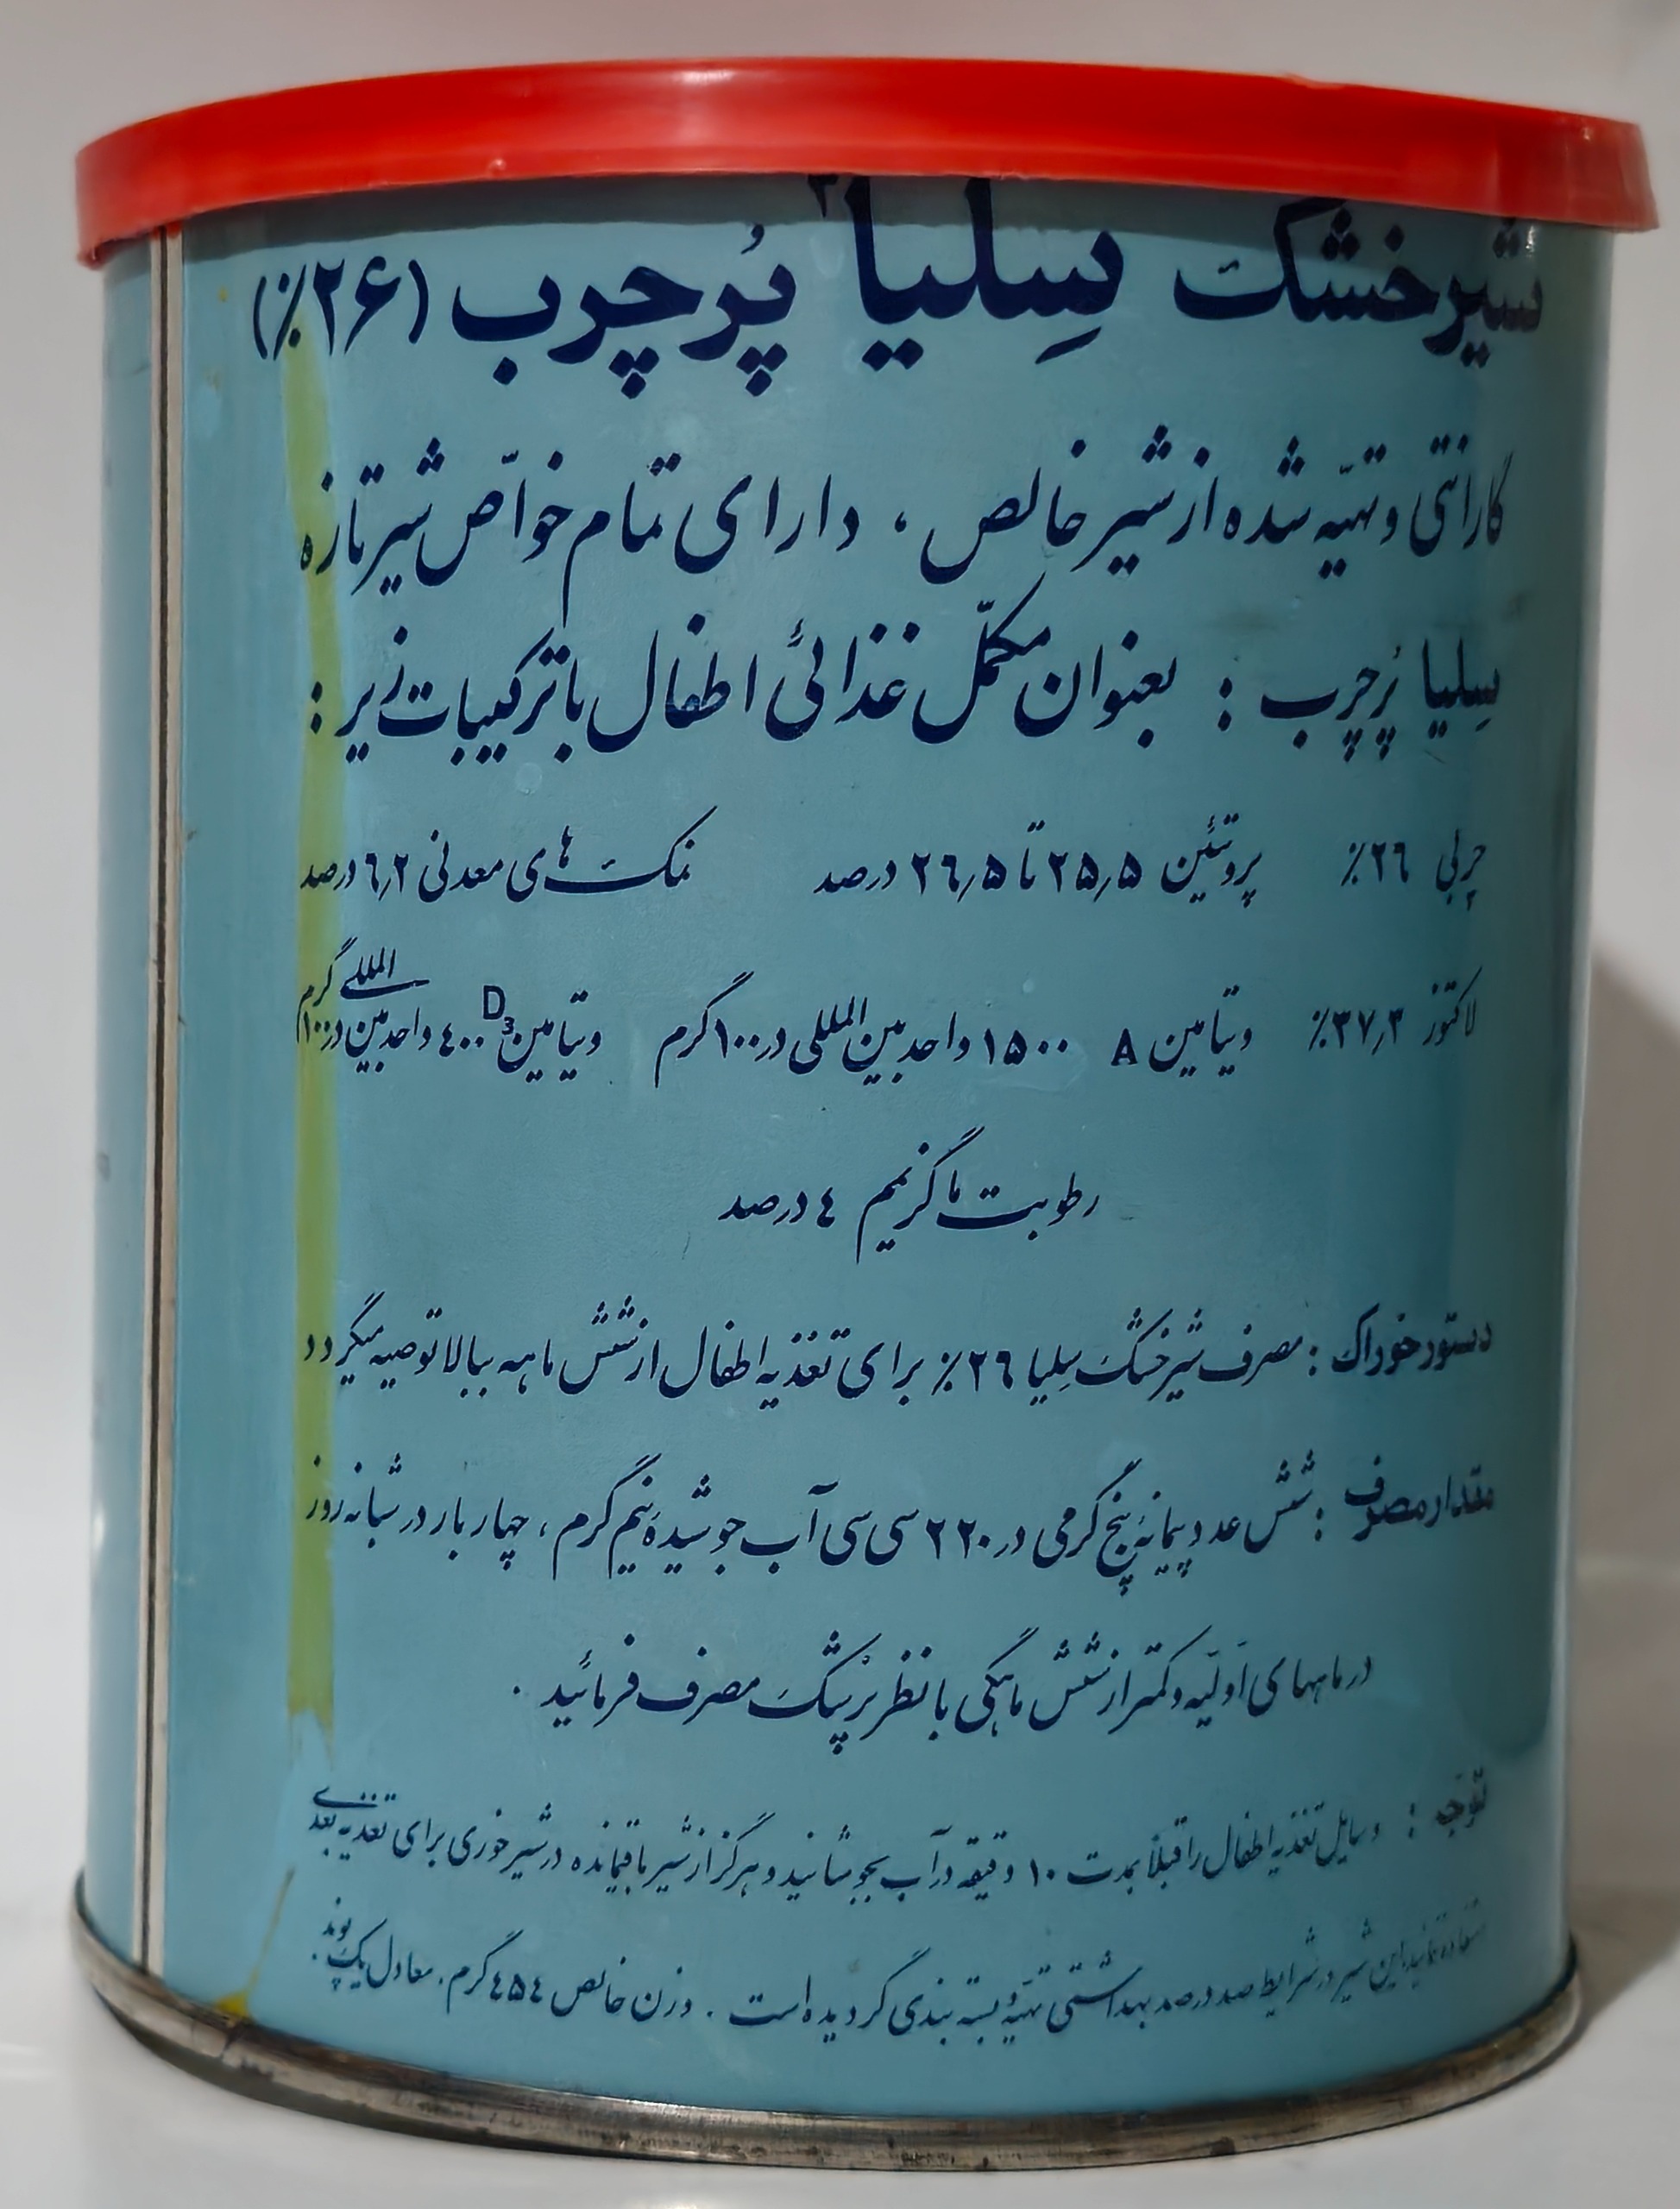 شیر خشک سِلیا پُر چرب (۲۶٪)
گارانتی و تهیّه شده از شیر خالص ، دارای تمام خواّص شیر تازه
سِلیا پُرچرب : بعنوان مکمّل غذائی اطفال با ترکیبات زیر :
چربی ۲٦٪ پروتئین ۲۵٫۵ تا ۲٦٫۵ درصد نمک های معدنی ٦٫۲ درصد
لاکتوز ۳۷٫۳٪ ویتامین A ۱۵۰۰ واحد بین المللی در ۱۰۰ گرم ویتامین D3 ٤۰۰ واحد بین المللی در ۱۰۰ گرم
رطوبت ماگزیمم ٤ درصد
دستور خوراک : مصرف شیر خشک سِلیا ۲٦٪ برای تغذیه اطفال از شش ماهه ببالا توصیه میگردد
مقدار مصرف : شش عدد پیمانهٔ پنج گرمی در ۲۲۰ سی سی آب جوشیدهٔ نیم گرم ، چهار بار در شبانه روز
در ماههای اَولّیه و کمتر از شش ماهگی با نظر پزشک مصرف فرمائید .
توجّه : وسایل تغذیه اطفال را قبلاً بمدت ۱۰ دقیقه در آب بجوشانید و هرگز از شیر باقیمانده در شیر خوری برای تغذیه بعدی
این شیر در شرایط صد درصد بهداشتی تهیّه و بسته بندی گردیده است . وزن خالص ٤۵٤ گرم، معادل یک پوند .